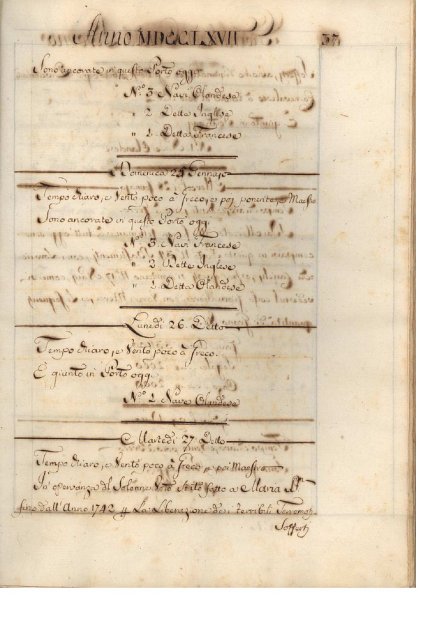 Anno MDCCLXVII 37
Sono ancorate in questo Porto oggi
N.º 3 Navi Olandese
" 2 Dette Inglese
" 1 Detta Francese
Domenica 25 Gennajo
Tempo chiaro, e Vento poco à Greco, e poi ponente, e Maestro
Sono ancorate in questo Porto oggi
N.º 3 Navi Francese
" 3 Dette Inglese
" 1 Detta Olandese
Lunedi 26. Detto
Tempo chiaro, e Vento poco à Greco.
È giunto in Porto oggi
N.º 1 Nave Olandese
Martedi 27 Detto
Tempo chiaro, e Vento poco à Greco e poi Maestro
In osservanza del Solenne Voto Stato fatto a Maria SS.
fino dall'Anno 1742 la Liberazione dei terribili Terremoti
Sofferti